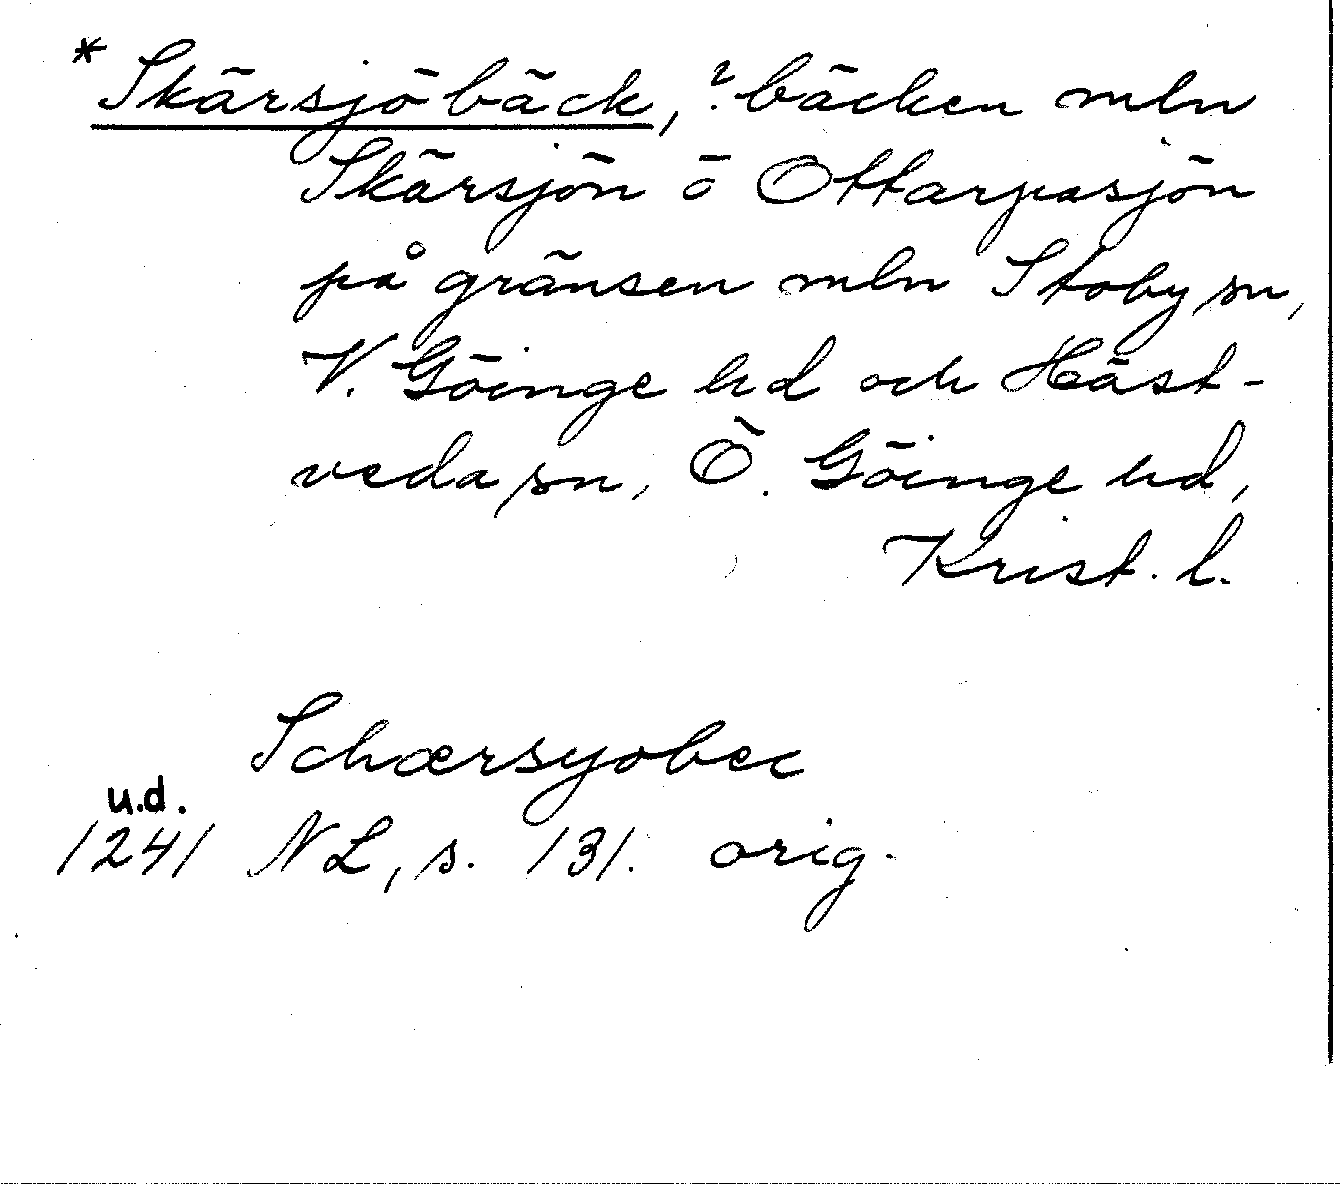 * Skärsjöbäck, ? bäcken mln
Skärsjön o Ottarpasjön
på gränsen mln Stoby sn,
V. Göinge hd och Häst-
veda sn, Ö. Göinge hd,
Krist. l.
Schærsyobec
u.d.
1241 NL, s. 131. orig.